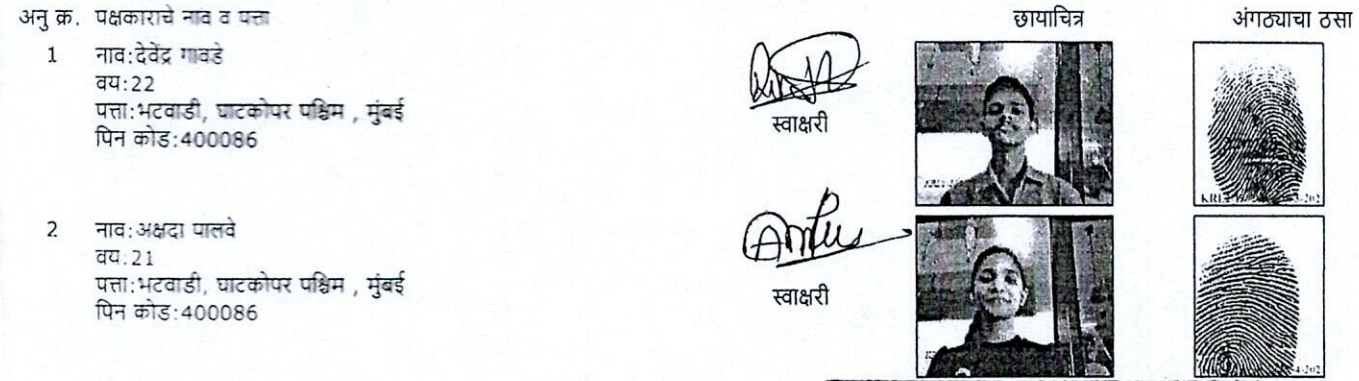 अनु क्र. पक्षकाराचे नाव व पत्ता छायाचित्र अंगठ्याचा ठसा
1 नाव:देवेंद्र गावडे
वय:22
पत्ता:भटवाडी, घाटकोपर पश्चिम , मुंबई
पिन कोड:400086
स्वाक्षरी
2 नाव:अक्षदा पालवे
वय:21
पत्ता:भटवाडी, घाटकोपर पश्चिम , मुंबई
पिन कोड:400086
स्वाक्षरी